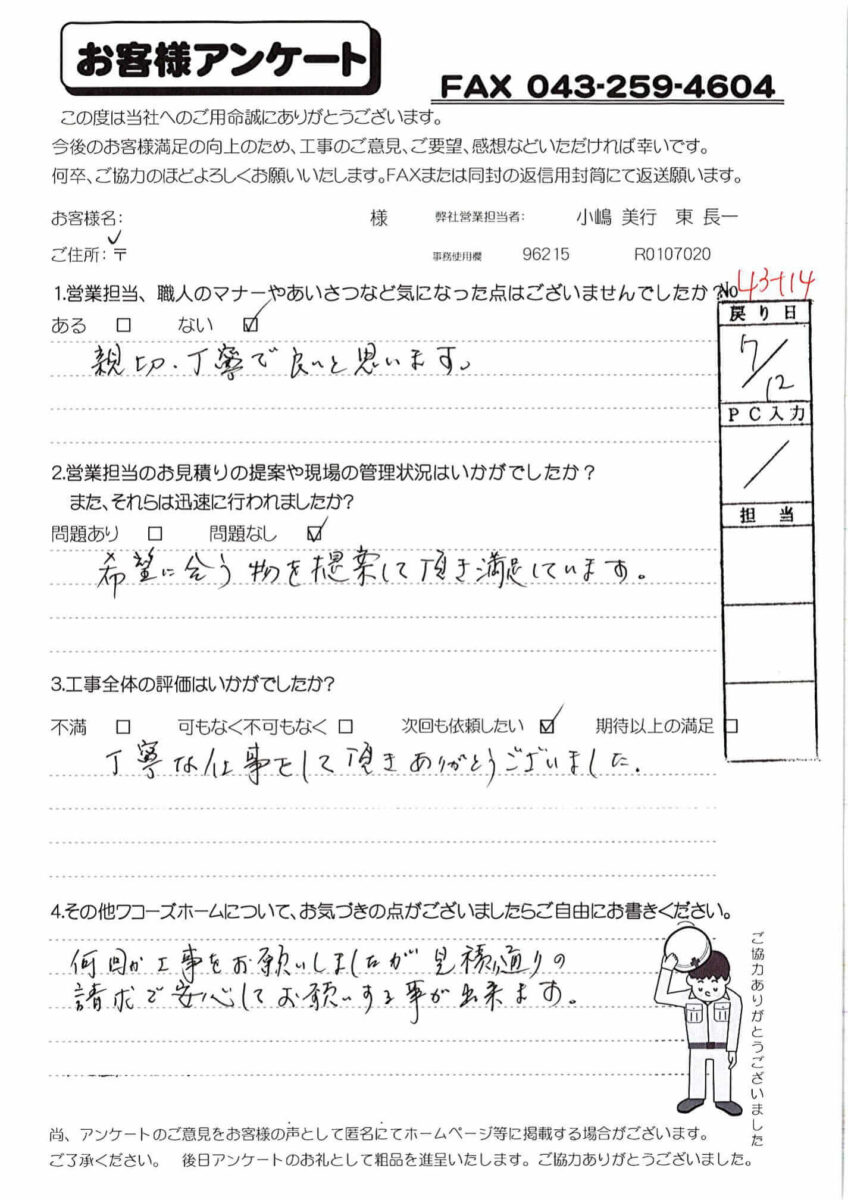 お客様アンケート
FAX 043-259-4604
この度は当社へのご用命誠にありがとうございます。
今後のお客様満足の向上のため、工事のご意見、ご要望、感想などいただければ幸いです。
何卒、ご協力のほどよろしくお願いいたします。FAXまたは同封の返信用封筒にて返送願います。
お客様名: 様 弊社営業担当者: 小嶋 美行 東 長一
ご住所:〒 事務使用欄 96215 R0107020
1.営業担当、職人のマナーやあいさつなど気になった点はございませんでしたか?
No 43114
ある □ ない ☑
戻り日
7/12
親切、丁寧で良いと思います。
PC入力
/
2.営業担当のお見積りの提案や現場の管理状況はいかがでしたか?
また、それらは迅速に行われましたか?
担当
問題あり □ 問題なし ☑
希望に合う物を提案して頂き満足しています。
3.工事全体の評価はいかがでしたか?
不満 □ 可もなく不可もなく □ 次回も依頼したい ☑ 期待以上の満足 □
丁寧な仕事をして頂きありがとうございました.
4.その他ワコーズホームについて、お気づきの点がございましたらご自由にお書きください。
何回か工事をお願いしましたが見積り通りの
請求で安心してお願いする事が出来ます。
ご協力ありがとうございました
尚、アンケートのご意見をお客様の声として匿名にてホームページ等に掲載する場合がございます。
ご了承ください。 後日アンケートのお礼として粗品を進呈いたします。ご協力ありがとうございました。